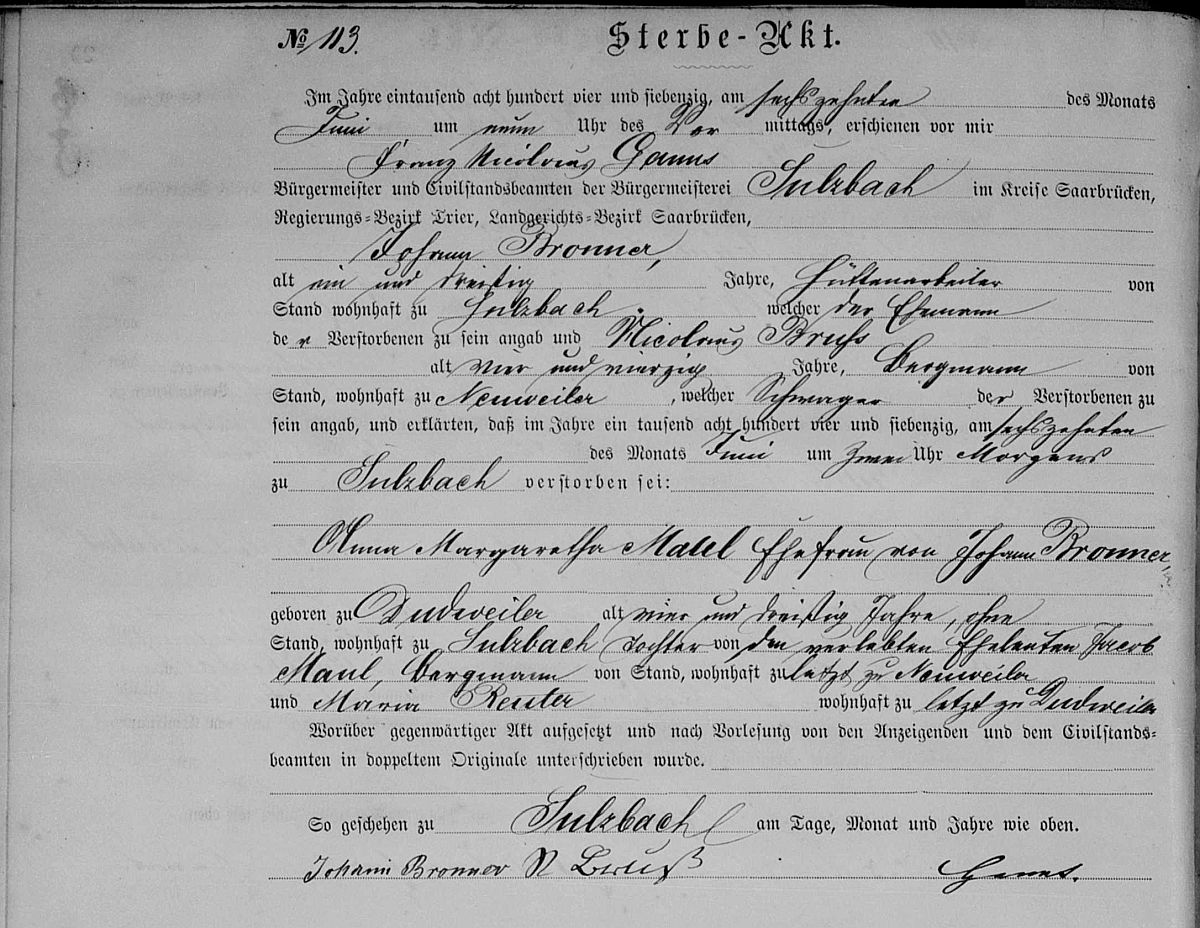 № 113. Sterbe-Akt.
Im Jahre eintausend acht hundert vier und siebenzig, am sechszehnten des Monats
Juni um neun Uhr des Vor mittags, erschienen vor mir
Franz Nicolaus
Bürgermeister und Civilstandsbeamten der Bürgermeisterei Sulzbach im Kreise Saarbrücken,
Regierungs-Bezirk Trier, Landgerichts-Bezirk Saarbrücken,
Johann Bronner,
alt ein und dreißig Jahre, Hüttenarbeiter von
Stand wohnhaft zu Sulzbach welcher der Ehemann
der Verstorbenen zu sein angab und Nicolaus
alt vier und vierzig Jahre, Bergmann von
Stand, wohnhaft zu Neuweiler, welcher Schwager der Verstorbenen zu
sein angab, und erklärten, daß im Jahre ein tausend acht hundert vier und siebenzig, am sechszehnten
des Monats Juni um zwei Uhr Morgens
zu Sulzbach verstorben sei:
Anna Margaretha Ehefrau von Johann Bronner,
geboren zu Dudweiler alt vier und dreißig Jahre, ohne
Stand, wohnhaft zu Sulzbach Tochter von den verlebten Eheleuten Jacob
Maul, Bergmann von Stand, wohnhaft zu letzt zu Neuweiler
und Maria Reuter wohnhaft zu letzt zu Dudweiler
Worüber gegenwärtiger Akt aufgesetzt und nach Vorlesung von den Anzeigenden und dem Civilstands-
beamten in doppeltem Originale unterschrieben wurde.
So geschehen zu Sulzbach am Tage, Monat und Jahre wie oben.
Johann Bronner N